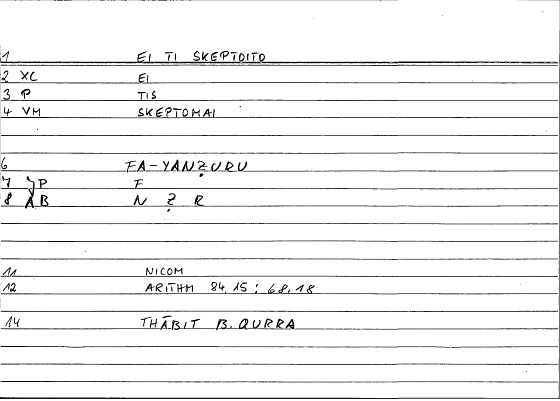 1 EI TI SKEPTOITO
2 XC EI
3 P TIS
4 VM SKEPTOMAI
6 FA-YANẒURU
7 P F
8 AB N Ẓ R
11 NICOM
12 ARITHM 84,15 : 68,18
14 THĀBIT B. QURRA